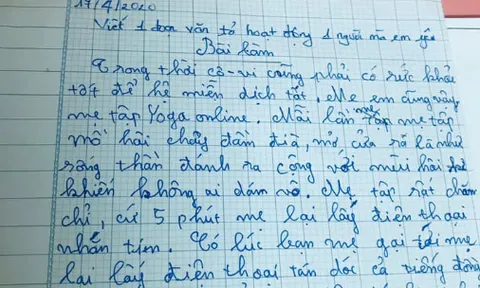 17/4/2020
Viết 1 đoạn văn tả hoạt động 1 người mà em yêu
Bài làm
Trong thời cô-vi cũng phải có sức khỏe
tốt để hệ miễn dịch tốt. Mẹ em cũng vậy
mẹ tập Yoga online. Mỗi lần mẹ tập mẹ tập
mồ hôi chảy đầm đìa, mở cửa ra là như
rồng thần đánh ra cộng với mùi hôi
khiến không ai dám vô. Mẹ tập rất chăm
chỉ, cứ 5 phút mẹ lại lấy điên thoại
nhắn tim. Có lúc bạn mẹ gọi tới mẹ
lại lấy điện thoại tán dóc cả tiếng đồng